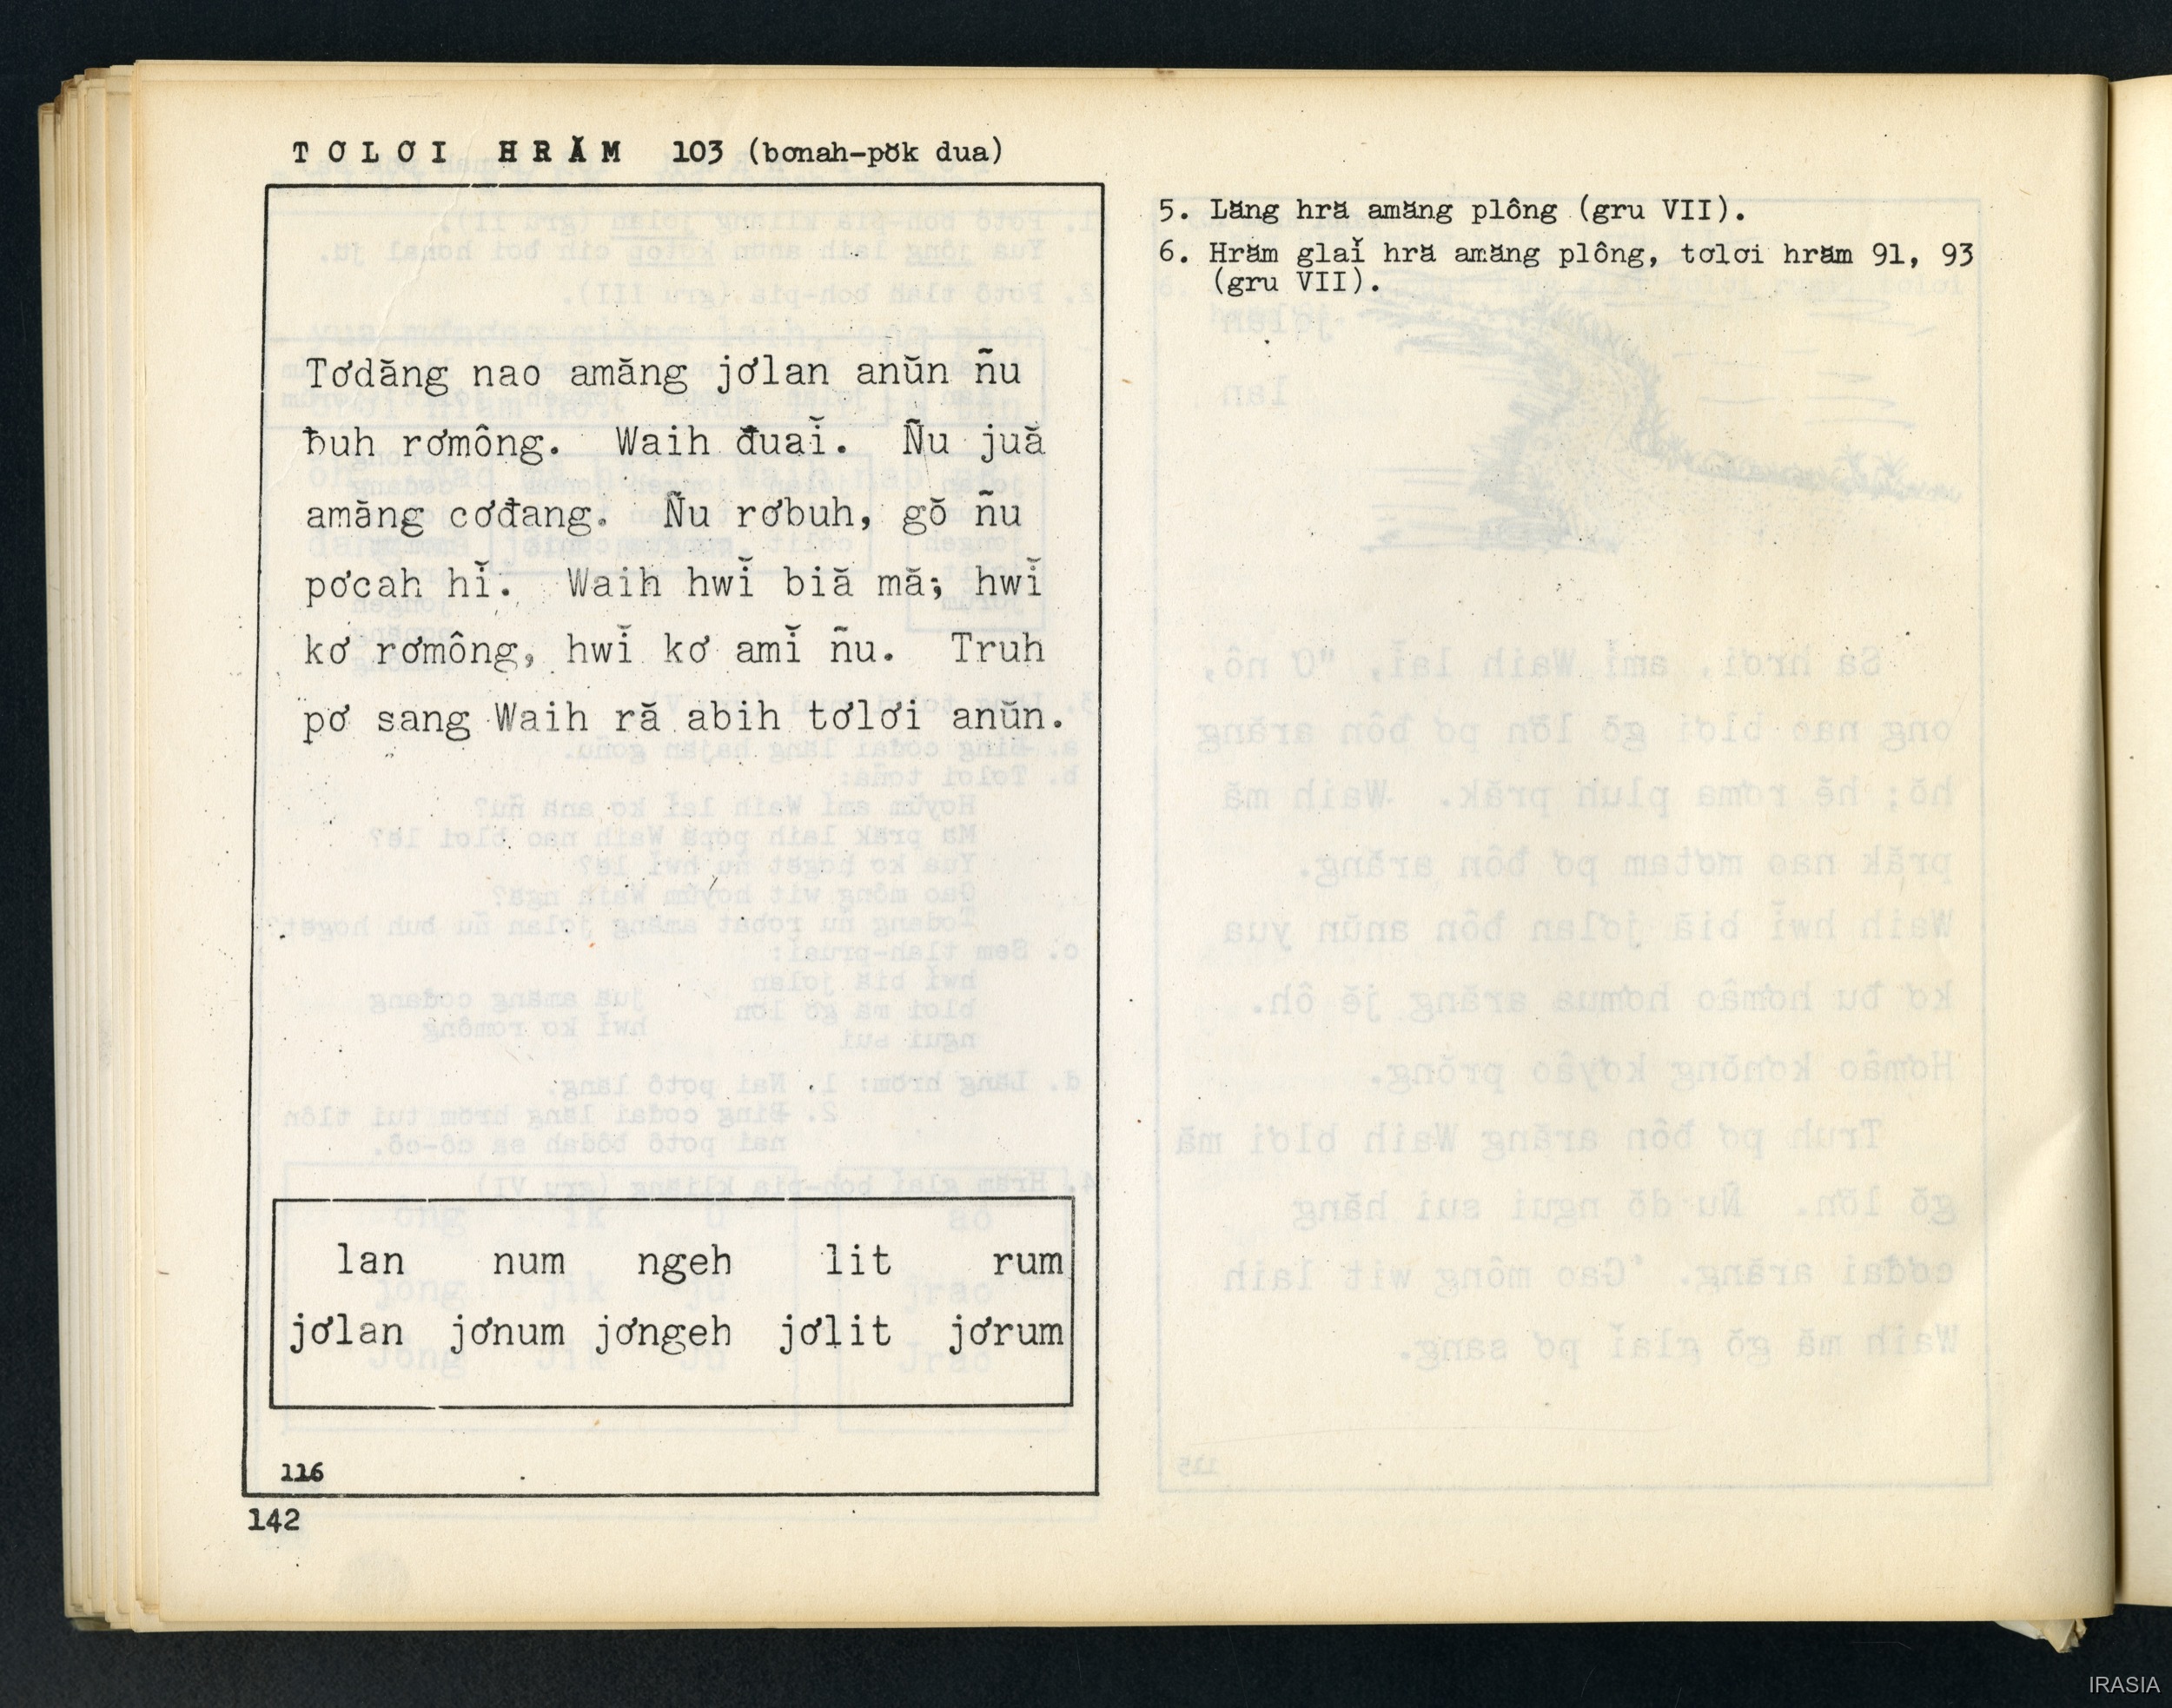 TƠLƠI HRĂM 103 (bơnah-pŏk dua)
Tơdăng nao amăng jơlan anŭn ñu
ƀuh rơmông. Waih đuaĭ. Ñu juă
amăng cơđang. Ñu rơbuh, gŏ ñu
pơcah hĭ. Waih hwĭ biă mă; hwĭ
kơ rơmông, hwĭ kơ amĭ ñu. Truh
pơ sang Waih ră abih tơlơi anŭn.
lan num ngeh lit rum
jơlan jơnum jơngeh jơlit jơrum
116
142
5. Lăng hră amăng plông (gru VII).
6. Hrăm glaĭ hră amăng plông, tơlơi hrăm 91, 93
(gru VII).
IRASIA